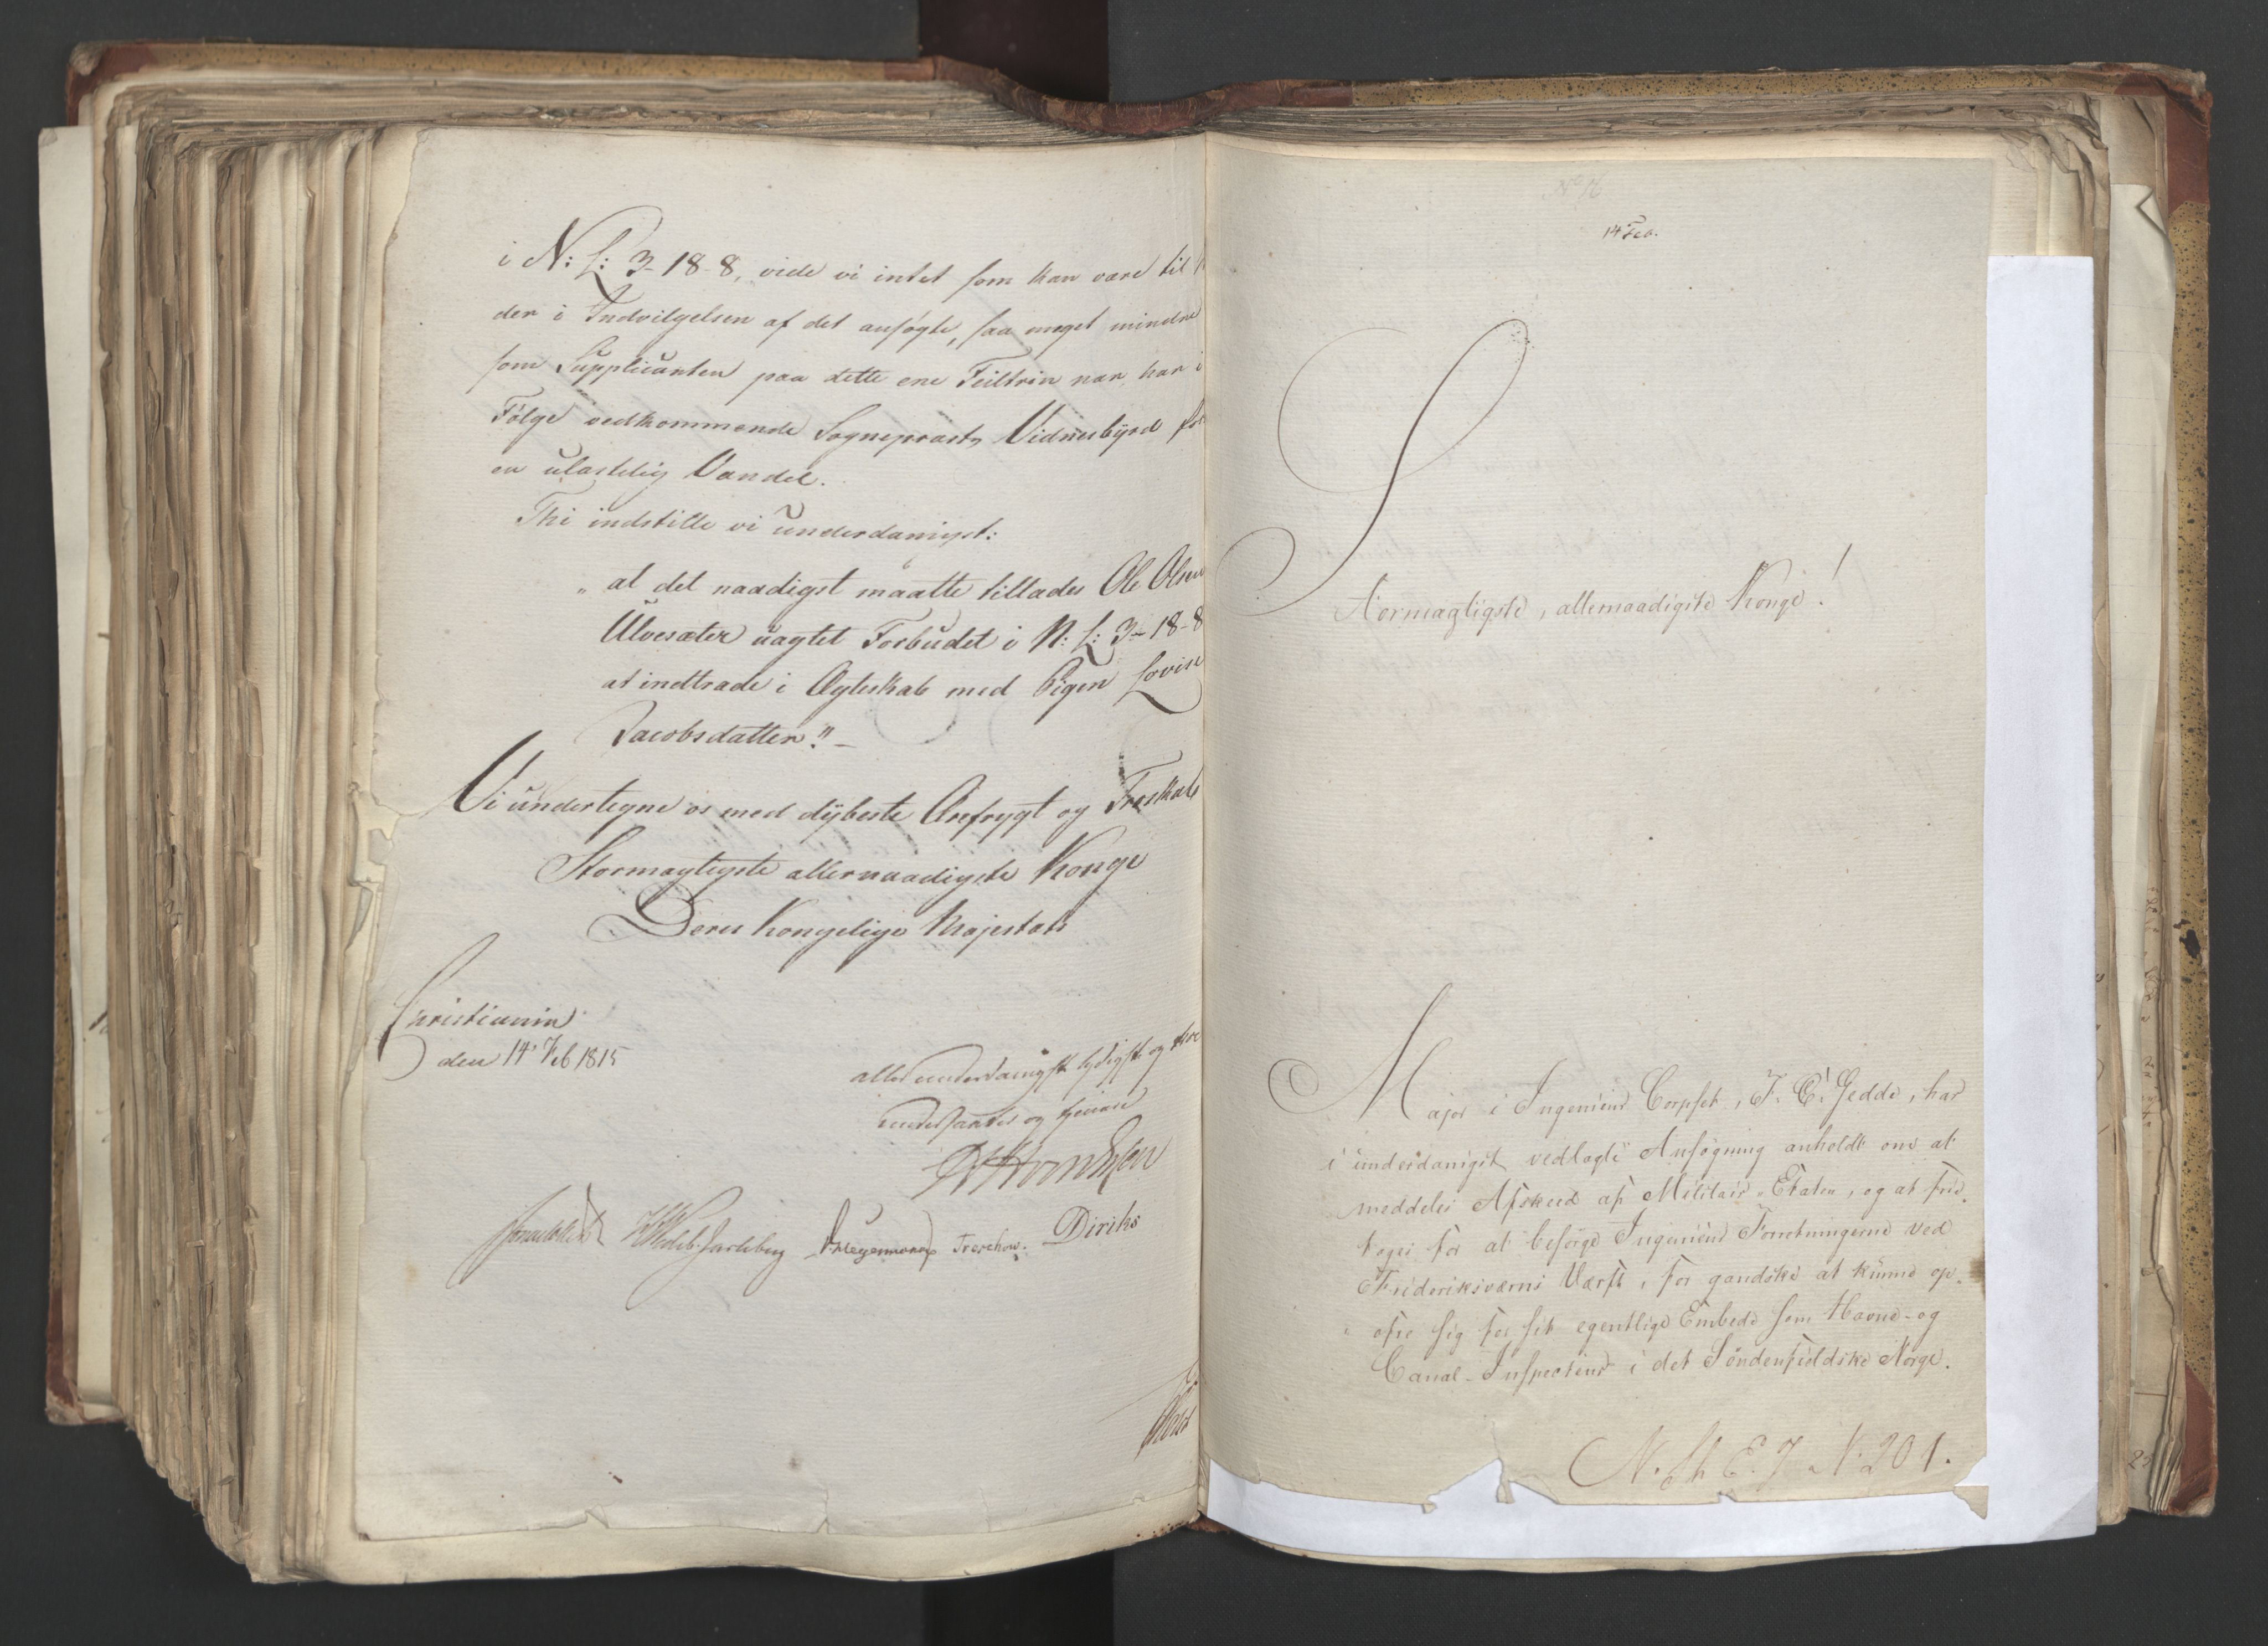 i N: L: 3-18-8, vide vi intet som kan være til
der i Indvilgelsen af det ansøgte, saa meget mindre
som Supplicanten paa dette ene Feiltrin nær, har i
Følge vedkommende Sognepræsts Vidnesbyrd
en ulastelig Vandel.
Thi indstille vi underdanigst:
„ at det naadigst maatte tillades Ole Olsen
Ulvesæter uagtet Forbudet i N: L: 3-18-8
at indtræde i Ægteskab med Pigen Lovise
Jacobsdatter." -
Vi undertegne os med dybeste Ærefrygt og Troskab
Stormægtigste allernaadigste Konge
Deres Kongelige Majestæts
Christiania
den 14' Feb 1815
allerunderdanigst lydigst og
undersaatter og tjenere
Sommerhielm Wedel-Jarlsberg Krieger Treschow. Diriks
No 16
14 Feb.
Stormægtigste, allernaadigste Konge!
Major i Ingenieur Corpset, F. C. Gedde, har
i underdanigst vedlagte Ansøgning anholdt om at
meddeles Afskeed af Militair-Etaten, og at fri-
tages for at besørge Ingenieur Forretningerne ved
Frideriksværns Værft, for gandske at kunne op-
ofre sig for sit egentlige Embede som Havne- og
Canal-Inspecteur i det Søndenfieldske Norge.
N. 201.